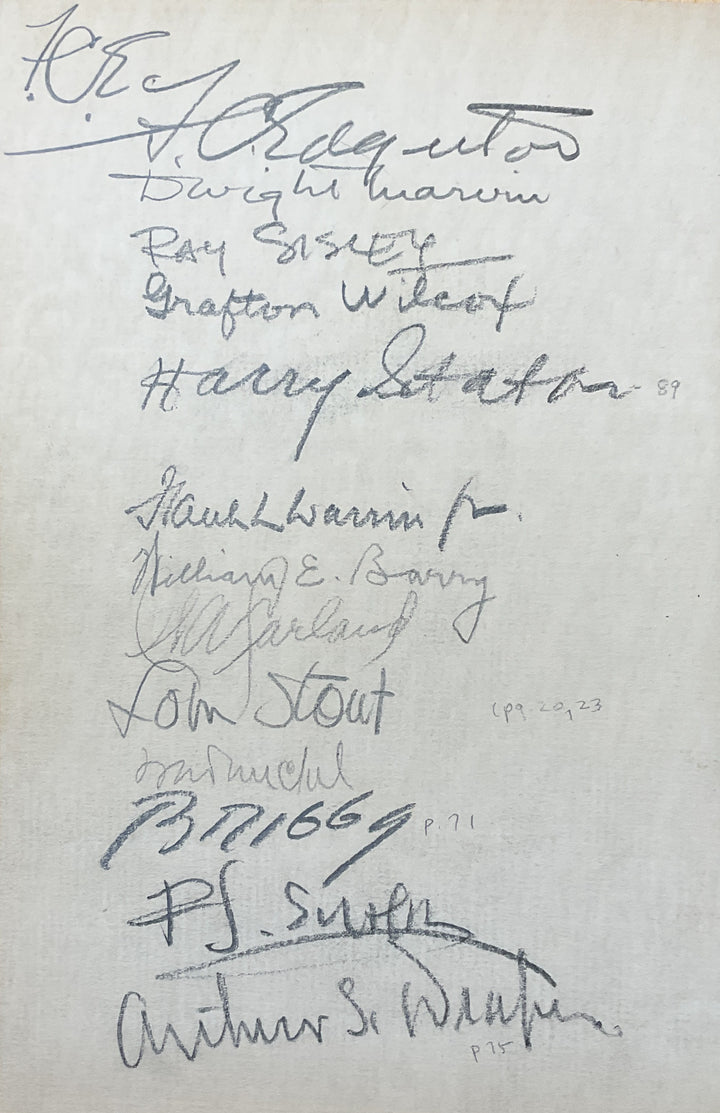 F.C.E.
F. C. Edgerton
Dwight Marvin
RAY SISLEY
Grafton Wilcox
Harry Staton - 89
L Warrin Jr.
William E. Barry
Garland
John Stout (pg. 20, 23
BRIGGS p. 71
Arthur S. Draper
p 75